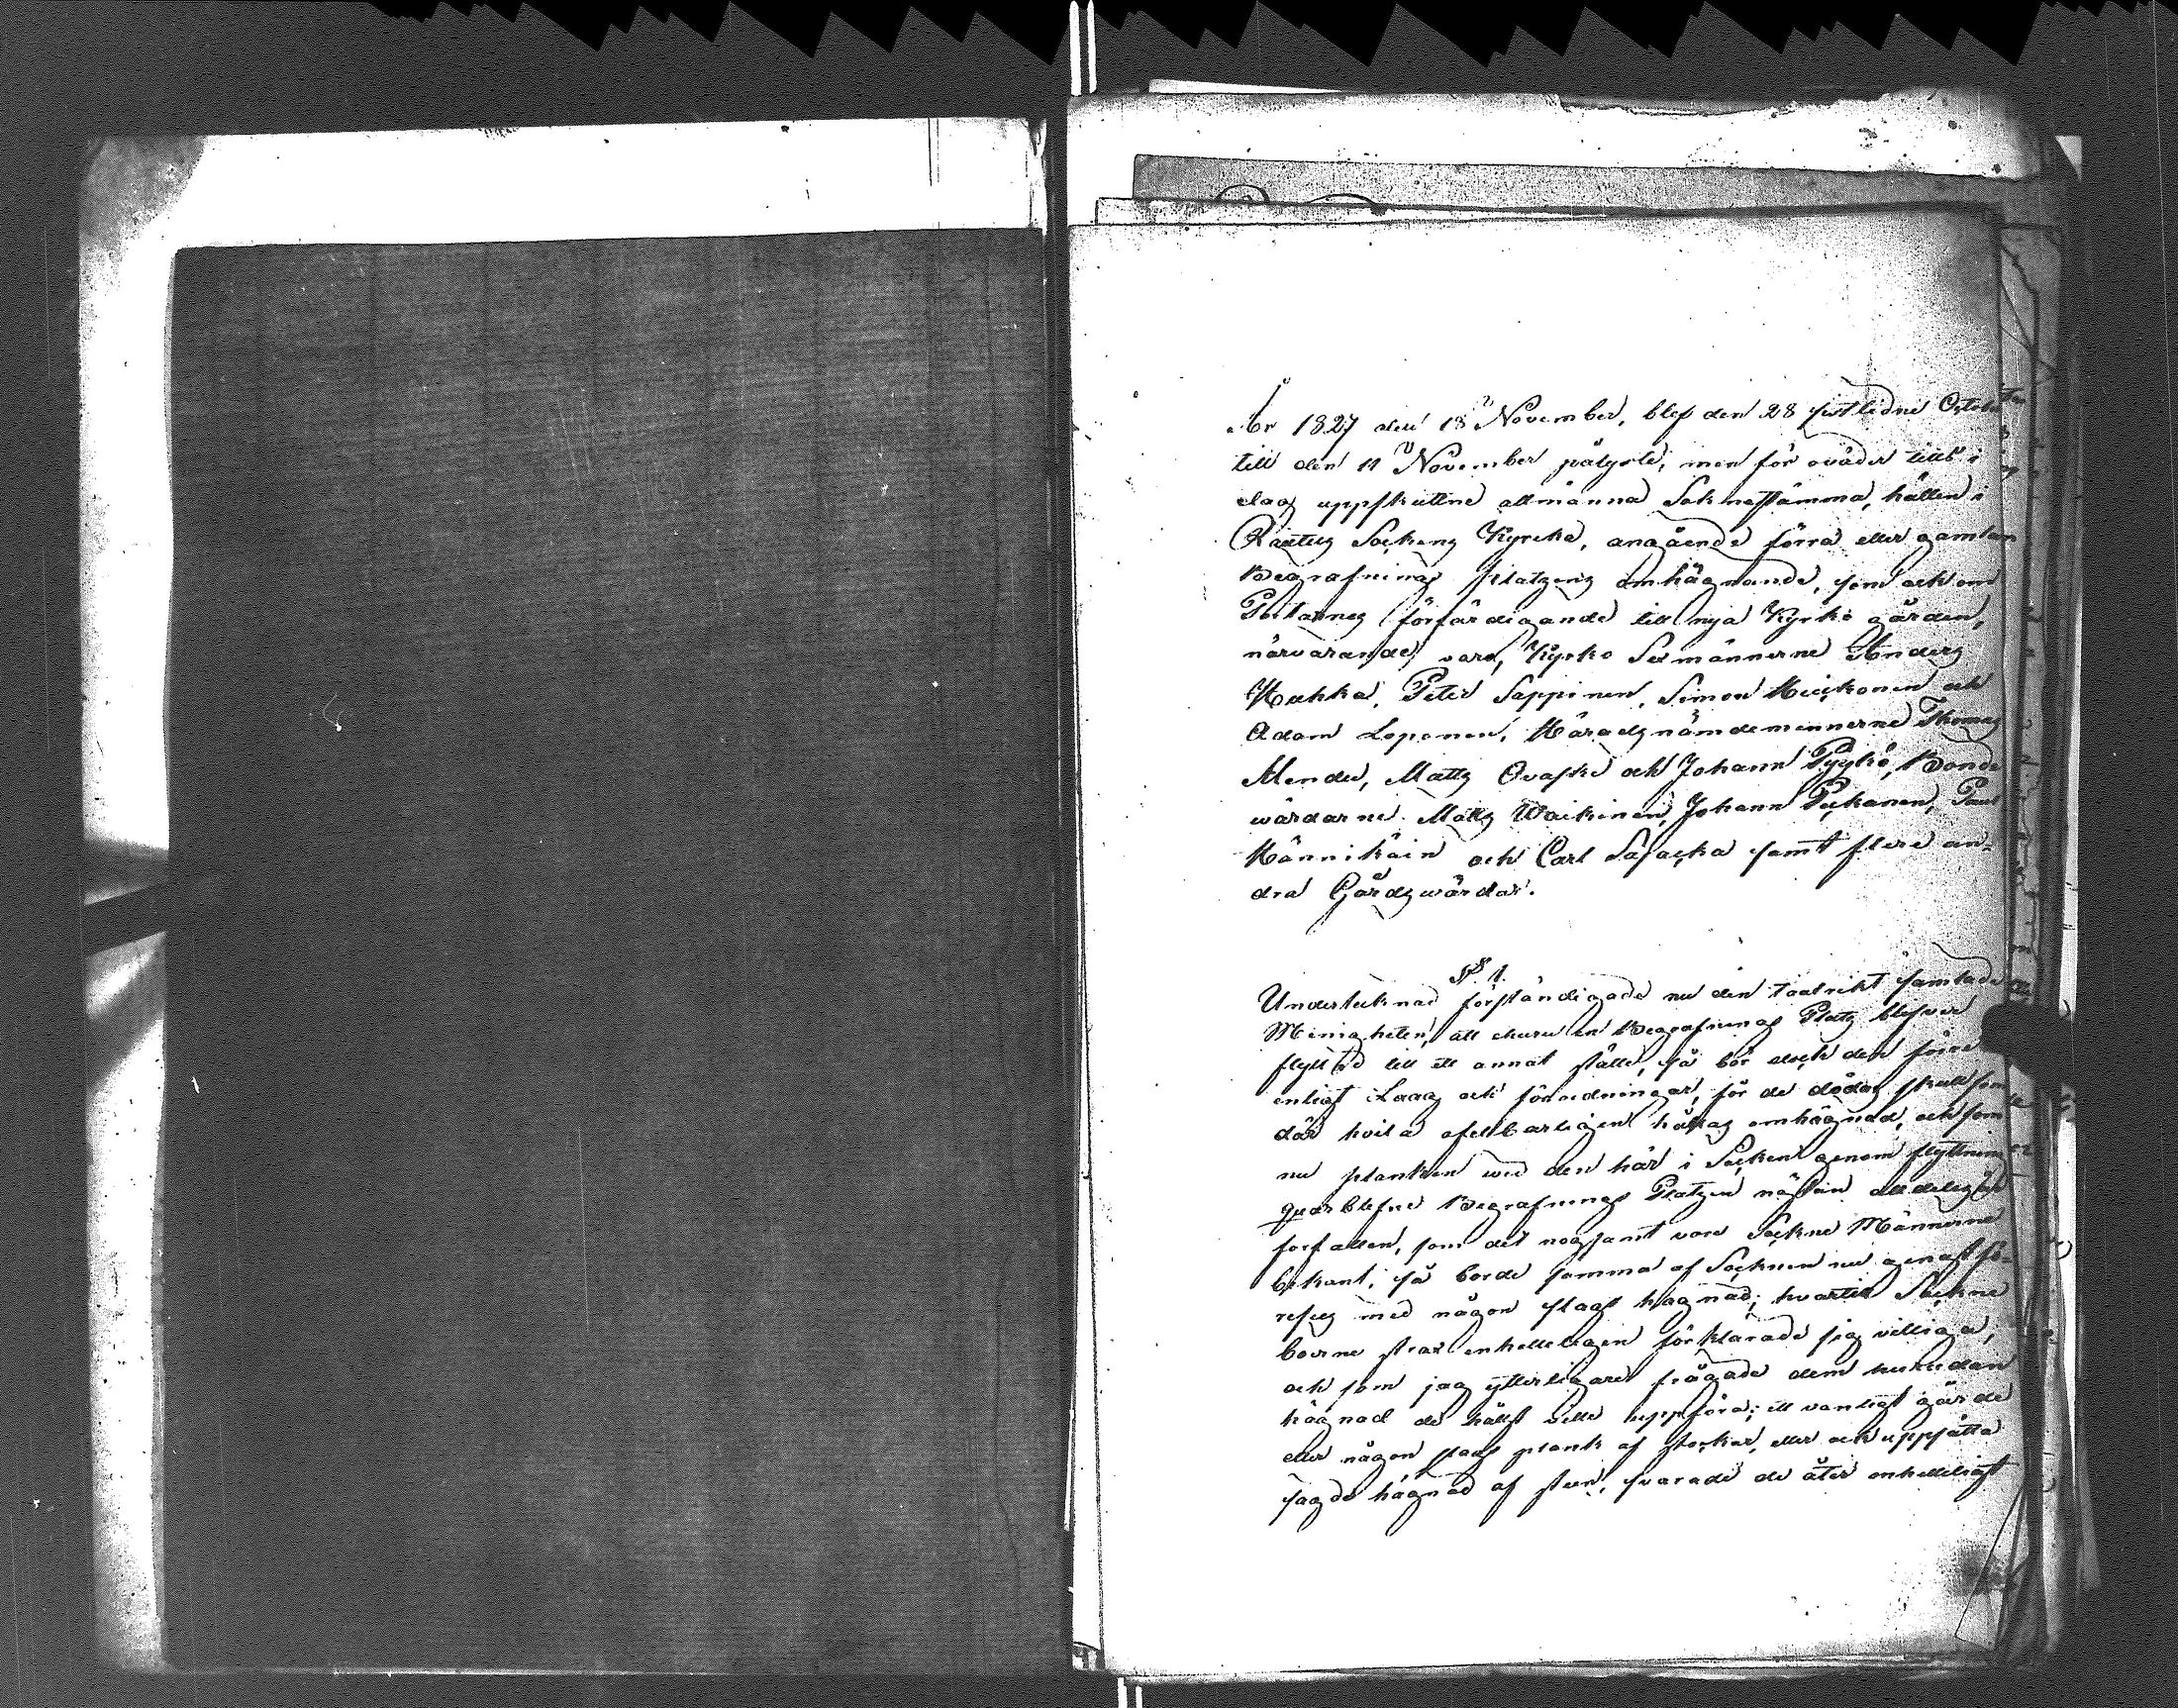 År 1827 den 18 November, blef den 28 sistledne October
till den 11 November pålyste, men för oväder till i
dag uppskuttne allmänna Soknestämma, hållen i
Rautus Sockens Kyrcka, angående förra eller gamla
Begrafnings platzens omhägnande, som ock om
Portarnes förfärdigande till nya Kyrko gården,
närvarande voro, Kyrko Sexmännerne Anders
Hukka, Peter Sappinen, Simon Kuickonen och
Adam Loponen, Häradsnämdemännerne Thomas
Mender, Matts Ovaska och Johann Pyykö, Bonde
wärdarne Matts Waikinen, Johann Puckanen, Paul
Männikäin och Carl Safacka samt flere an-
dra Gårdswärdar.
§ 1.
Undertecknad förständigade nu den taalrikt samlade
Menigheten, att ehuru en Begrafnings Platz blefve
flyttad till ett annat ställe, så bör dock den förre
enligt Laag och förordningar, för de dödas skull som
där hvila ofelbarligen hållas omhägnad, och som
nu planken wid den här i Socken genom flyttning
quarblefne Begrafnings Platzen nästan alldeles är
forfallen, som det nogsamt vore Sockne Männerne
bekant, så borde samma af Socknen nu genast för-
reses med någon slags hägnad; hvartill Sockne
boerne strax enhelleligen förklarade sig villiga,
och som jag ytterligare frågade dem hurudan
hägnad de hällst ville uppföra; ett vanligt gärde
eller någon slags plank af stockar, eller och uppsätta
sagde hägnad af sten, svarade de åter enhelleligt